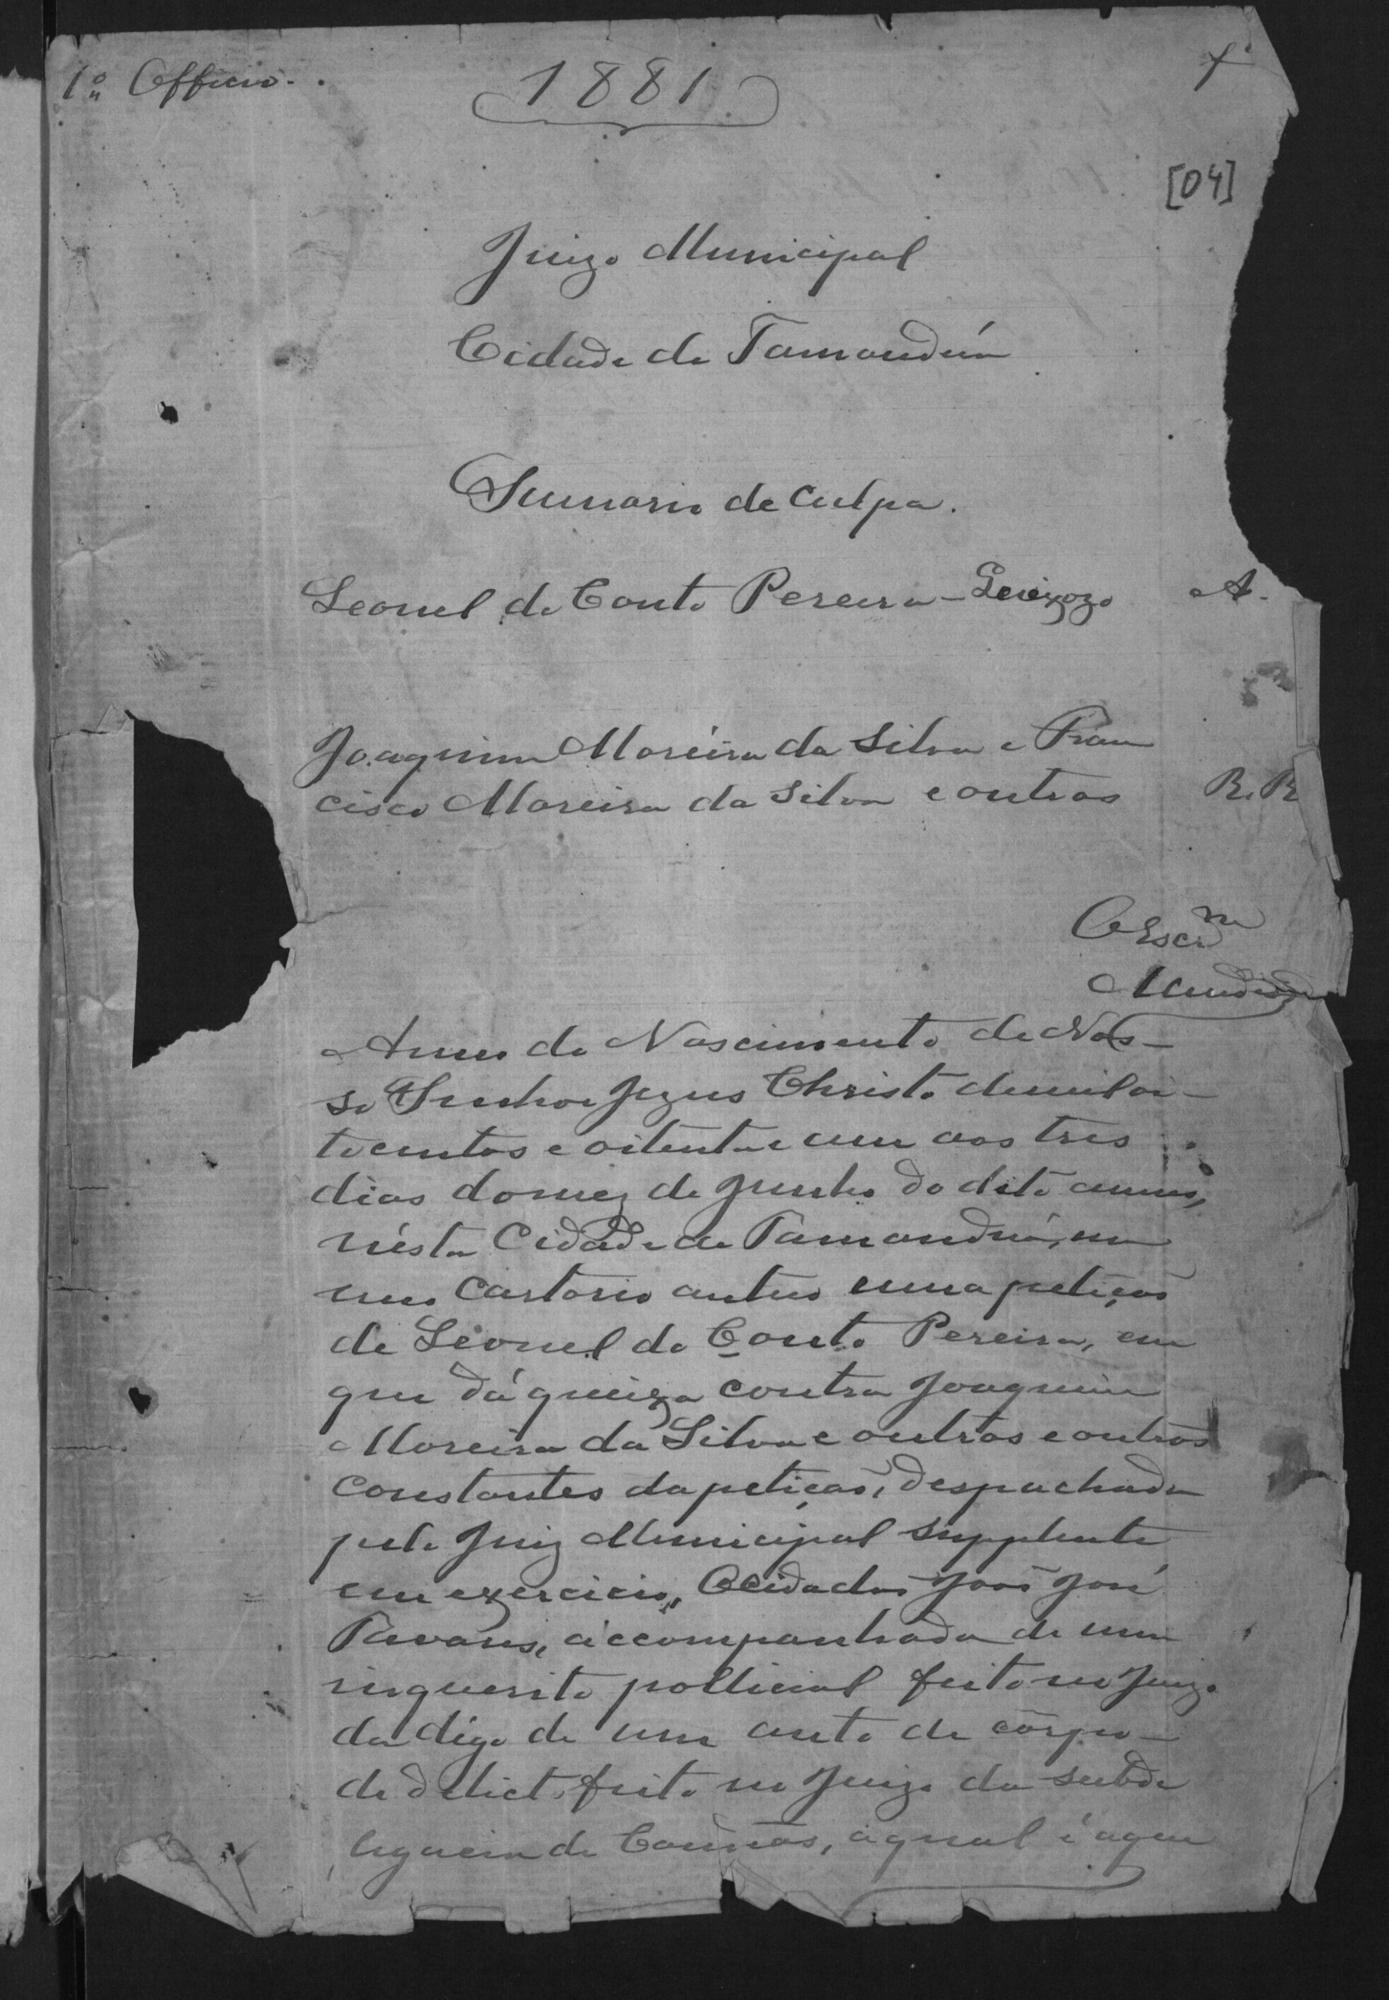 1º Officio.
1881
[04]
Juizo Municipal
Cidade de Tamanduá
Summario de culpa.
Leonel do Couto Pereira - Queixozo A.
Joaquim Moreira da Silva e Fran
cisco Moreira da Silva e outros R.R
O Escrm
Mendes
Anno do Nascimento de Nos-
so Senhor Jezus Christo de mil oi-
tocentos e oitenta e um aos tres
dias do mez de Junho do dito anno,
nésta Cidade de Tamanduá, em
meu cartorio autuo uma petiçaõ
de Leonel do Couto Pereira, em
que dá queixa contra Joaquim
Moreira da Silva e outros e outros
constantes da petiçaõ, despachada
pelo Juiz Municipal Supplente
em exercicio, O Cidadaõ Joaõ José
Tavares, accompanhada de um
inquerito pollicial feito no Juizo
da digo de um auto de corpo
de delicto feito no Juizo da subde
legacia de Candêas, a qual é a que